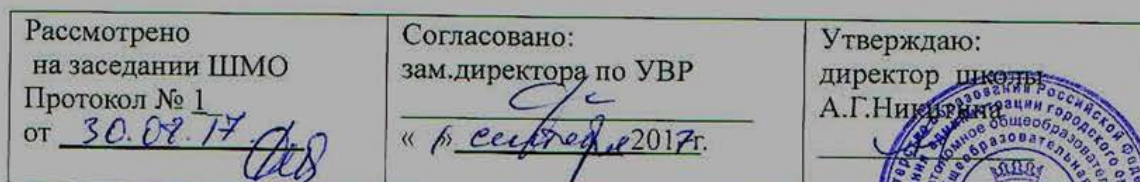 Рассмотрено
на заседании ШМО
Протокол № 1
от 30.08.17
Согласовано:
зам.директора по УВР
« 1» сентября 2017г.
Утверждаю:
директор школы
А.Г.Никитина